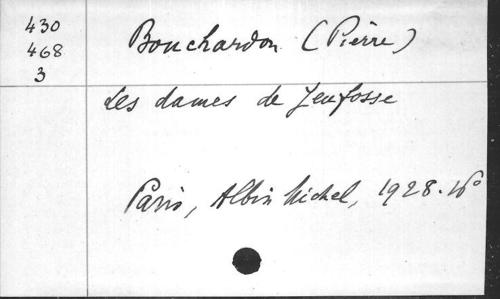 430
468
3
Bouchardon (Pierre)
Les dames de Jeufosse
Paris, Albin Michel, 1928. 16º